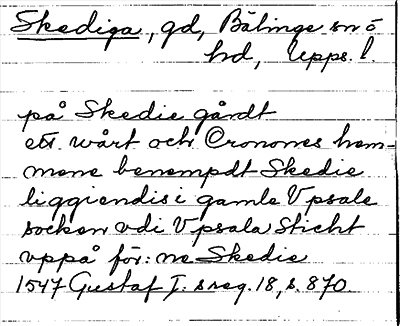 Skediga, gd, Bälinge sn o
hd, Upps. l.
på Skedie gårdt
ett wårt och Cronones hem-
mene benempdt Skedie
liggiendis i gamle Vpsale
socken vdi Vpsala Sticht
vppå för: ne Skedie
1547 Gustaf I: s reg. 18, s. 870.